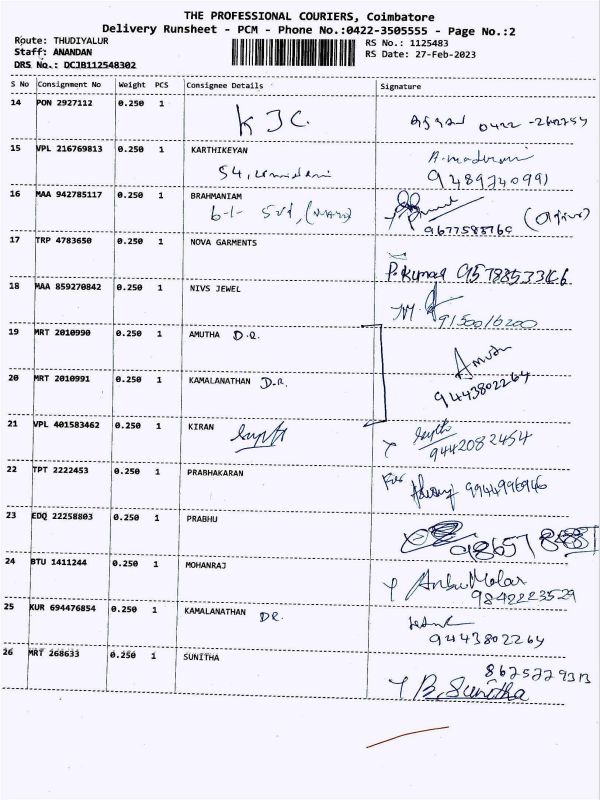 THE PROFESSIONAL COURIERS, Coimbatore
Delivery Runsheet - PCM - Phone No.:0422-3505555 - Page No.:2
Route: THUDIYALUR
RS No.: 1125483
Staff: ANANDAN
RS Date: 27-Feb-2023
DRS No.: DCJB112548302
S No Consignment No Weight PCS Consignee Details Signature
14 PON 2927112 0.250 1 KJC. 0422
15 VPL 216769813 0.250 1 KARTHIKEYAN
54,
16 MAA 942785117 0.250 1 BRAHMANIAM
9677588760
17 TRP 4783650 0.250 1 NOVA GARMENTS
P. Kumar
18 MAA 859270842 0.250 1 NIVS JEWEL
9150016200
19 MRT 2010990 0.250 1 AMUTHA D.R.
20 MRT 2010991 0.250 1 KAMALANATHAN D.R.
9443802264
21 VPL 401583462 0.250 1 KIRAN
9442082454
22 TPT 2222453 0.250 1 PRABHAKARAN 9944996946
23 EDQ 22258803 0.250 1 PRABHU
24 BTU 1411244 0.250 1 MOHANRAJ
Anbu Malar
9842223529
25 KUR 694476854 0.250 1 KAMALANATHAN DR.
9443802264
26 MRT 268633 0.250 1 SUNITHA
8625229313
B. Sunitha